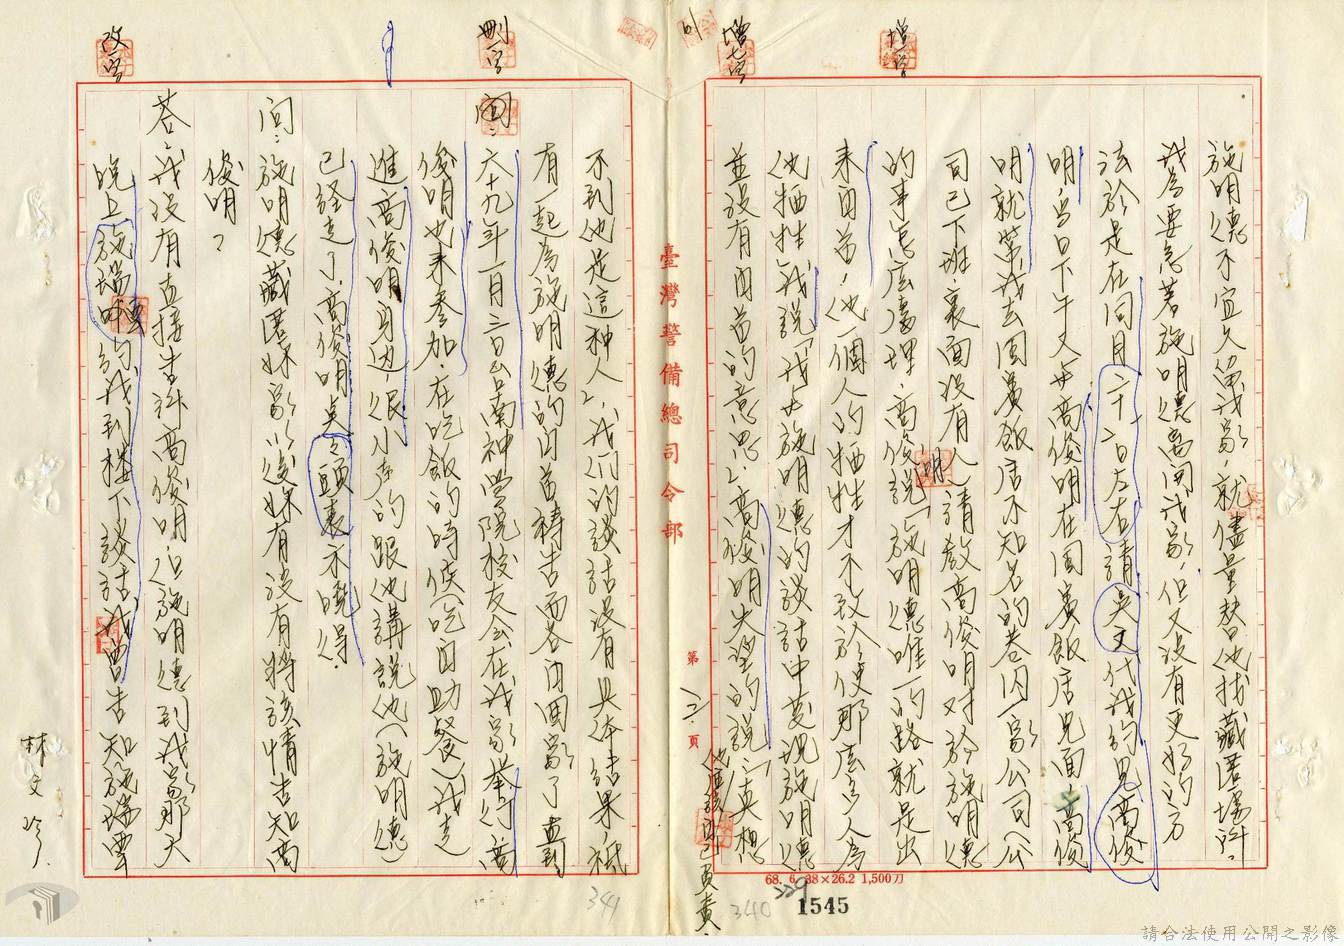 增一字
增七字
施明德不宜久留我家,就儘量替他找藏匿場所。
我為要急著施明德离開我家,但又沒有更好的方
法於是在同月二十八日左右請吳文代我約見高俊
明,当日下午又与高俊明在国賓飯店見面,高俊
明就帶我去国賓飯店不知名的巷内一家公司(公
司已下班,裏面沒有人)請教高俊明对於施明德
的事怎麼處理,高俊明說「施明德唯一的路就是出
來自首,他一個人的牺牲才不致於使那麼多人為
他牺牲」我說「我与施明德的談話中發現施明德
並沒有自首的意思」,高俊明失望的說:「真想
他應該自己負責
不到他是這种人」,我们的談話沒有具体結果,祗
有一起為施明德的自首禱告而各自回家了,直到
問:六十九年一月三日台南神學院校友会在我家舉行,高
俊明也來參加,在吃飯的時候(吃自助餐)我走
進高俊明身边,很小声的跟他講說他(施明德)
已經走了,高俊明点點頭表示曉得。
問:施明德藏匿妳家以後妳有沒有將該情告知高
俊明?
答:我沒有直接告訴高俊明,但施明德到我家那天
晚上施瑞雲約我到樓下談話,我曾告知施瑞雲
刪一字
改一字
臺灣警備總司令部
第
頁
68. 6. 38×26.2 1,500刀
1545
340
341
林文珍
請合法使用公開之影像